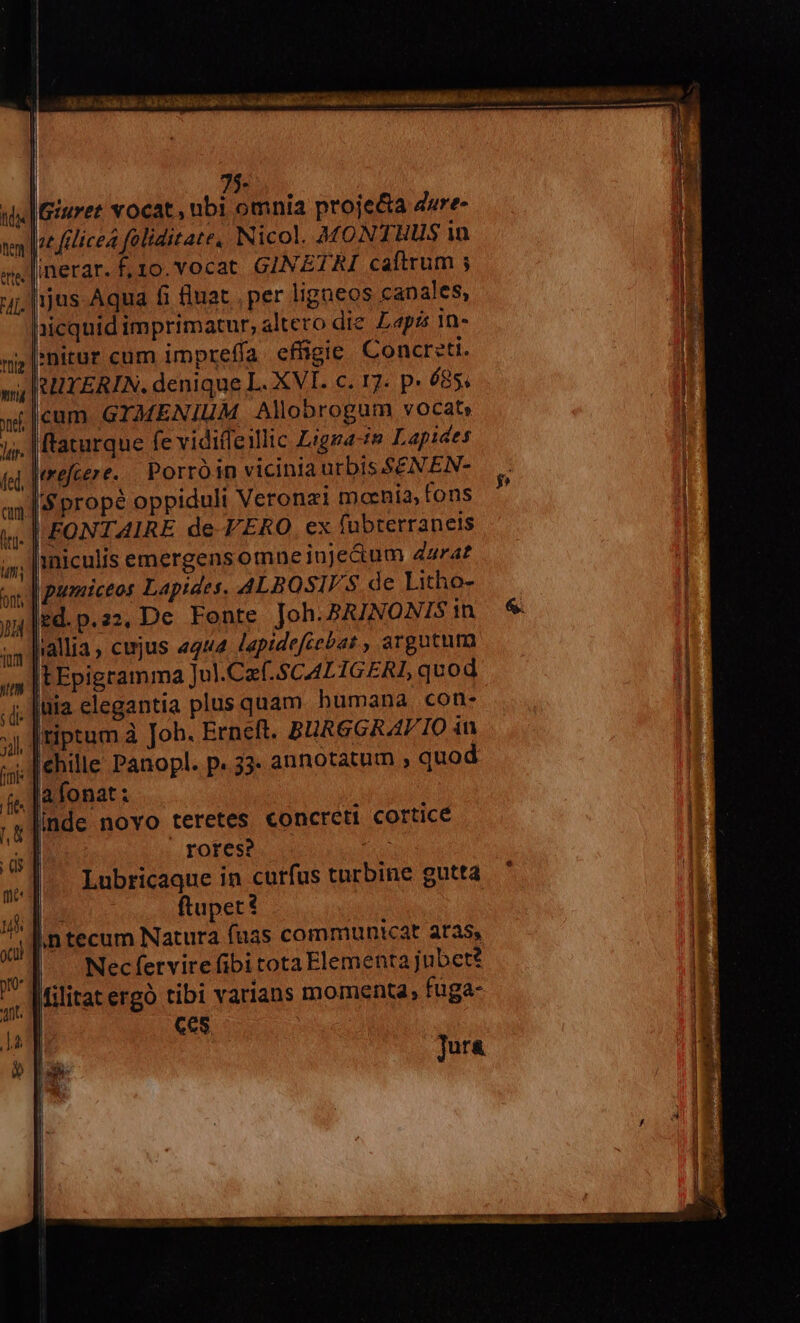 75.
Giuret vocat, ubi omnia projecta dure-
ſiliceâ ſoliditate, Nicol. MONTHUS in
inerar. f. 10. vocat GINETRI caſtrum;
Aqua ſi fluat, per ligneos canales,
icquid imprimatur, altero die Lapis in-
nitur cum impreſſa effigie Concreti.
RUYERIN. denique L. XVI. c. 17. p. 685.
cum GYMENIUM Allobrogum vocat,
ſtaturque ſe vidiſſe illic Ligna in Lapides
Porrò in vicinia urbis SENEN-
S propè oppiduli Veronæi mœnia, fons
FONTAIRE de VERO ex ſubterraneis
niculis emergens omne injectum durat
pumiceos Lapides. ALBOSIVS de Litho-
æd. p. 22, De Fonte Joh. BRINONIS in
allia, cujus aqua lapideſcebat, argutum
t Epigramma Jul. Cæſ. SCALIGERI, quod
uia elegantia plus quam humana con-
riptum à Joh. Erneſt. BURGGRAVIO in
chille Panopl. p. 33. annotatum, quod
a ſonat:
inde novo teretes concreti cortice
rores?
Lubricaque in curſus turbine gutta
ſtupet?
n tecum Natura ſuas communicat aras,
Nec ſervire ſibi tota Elementa jubet?
ſilitat ergò tibi varians momenta, fuga-
ces
Jura